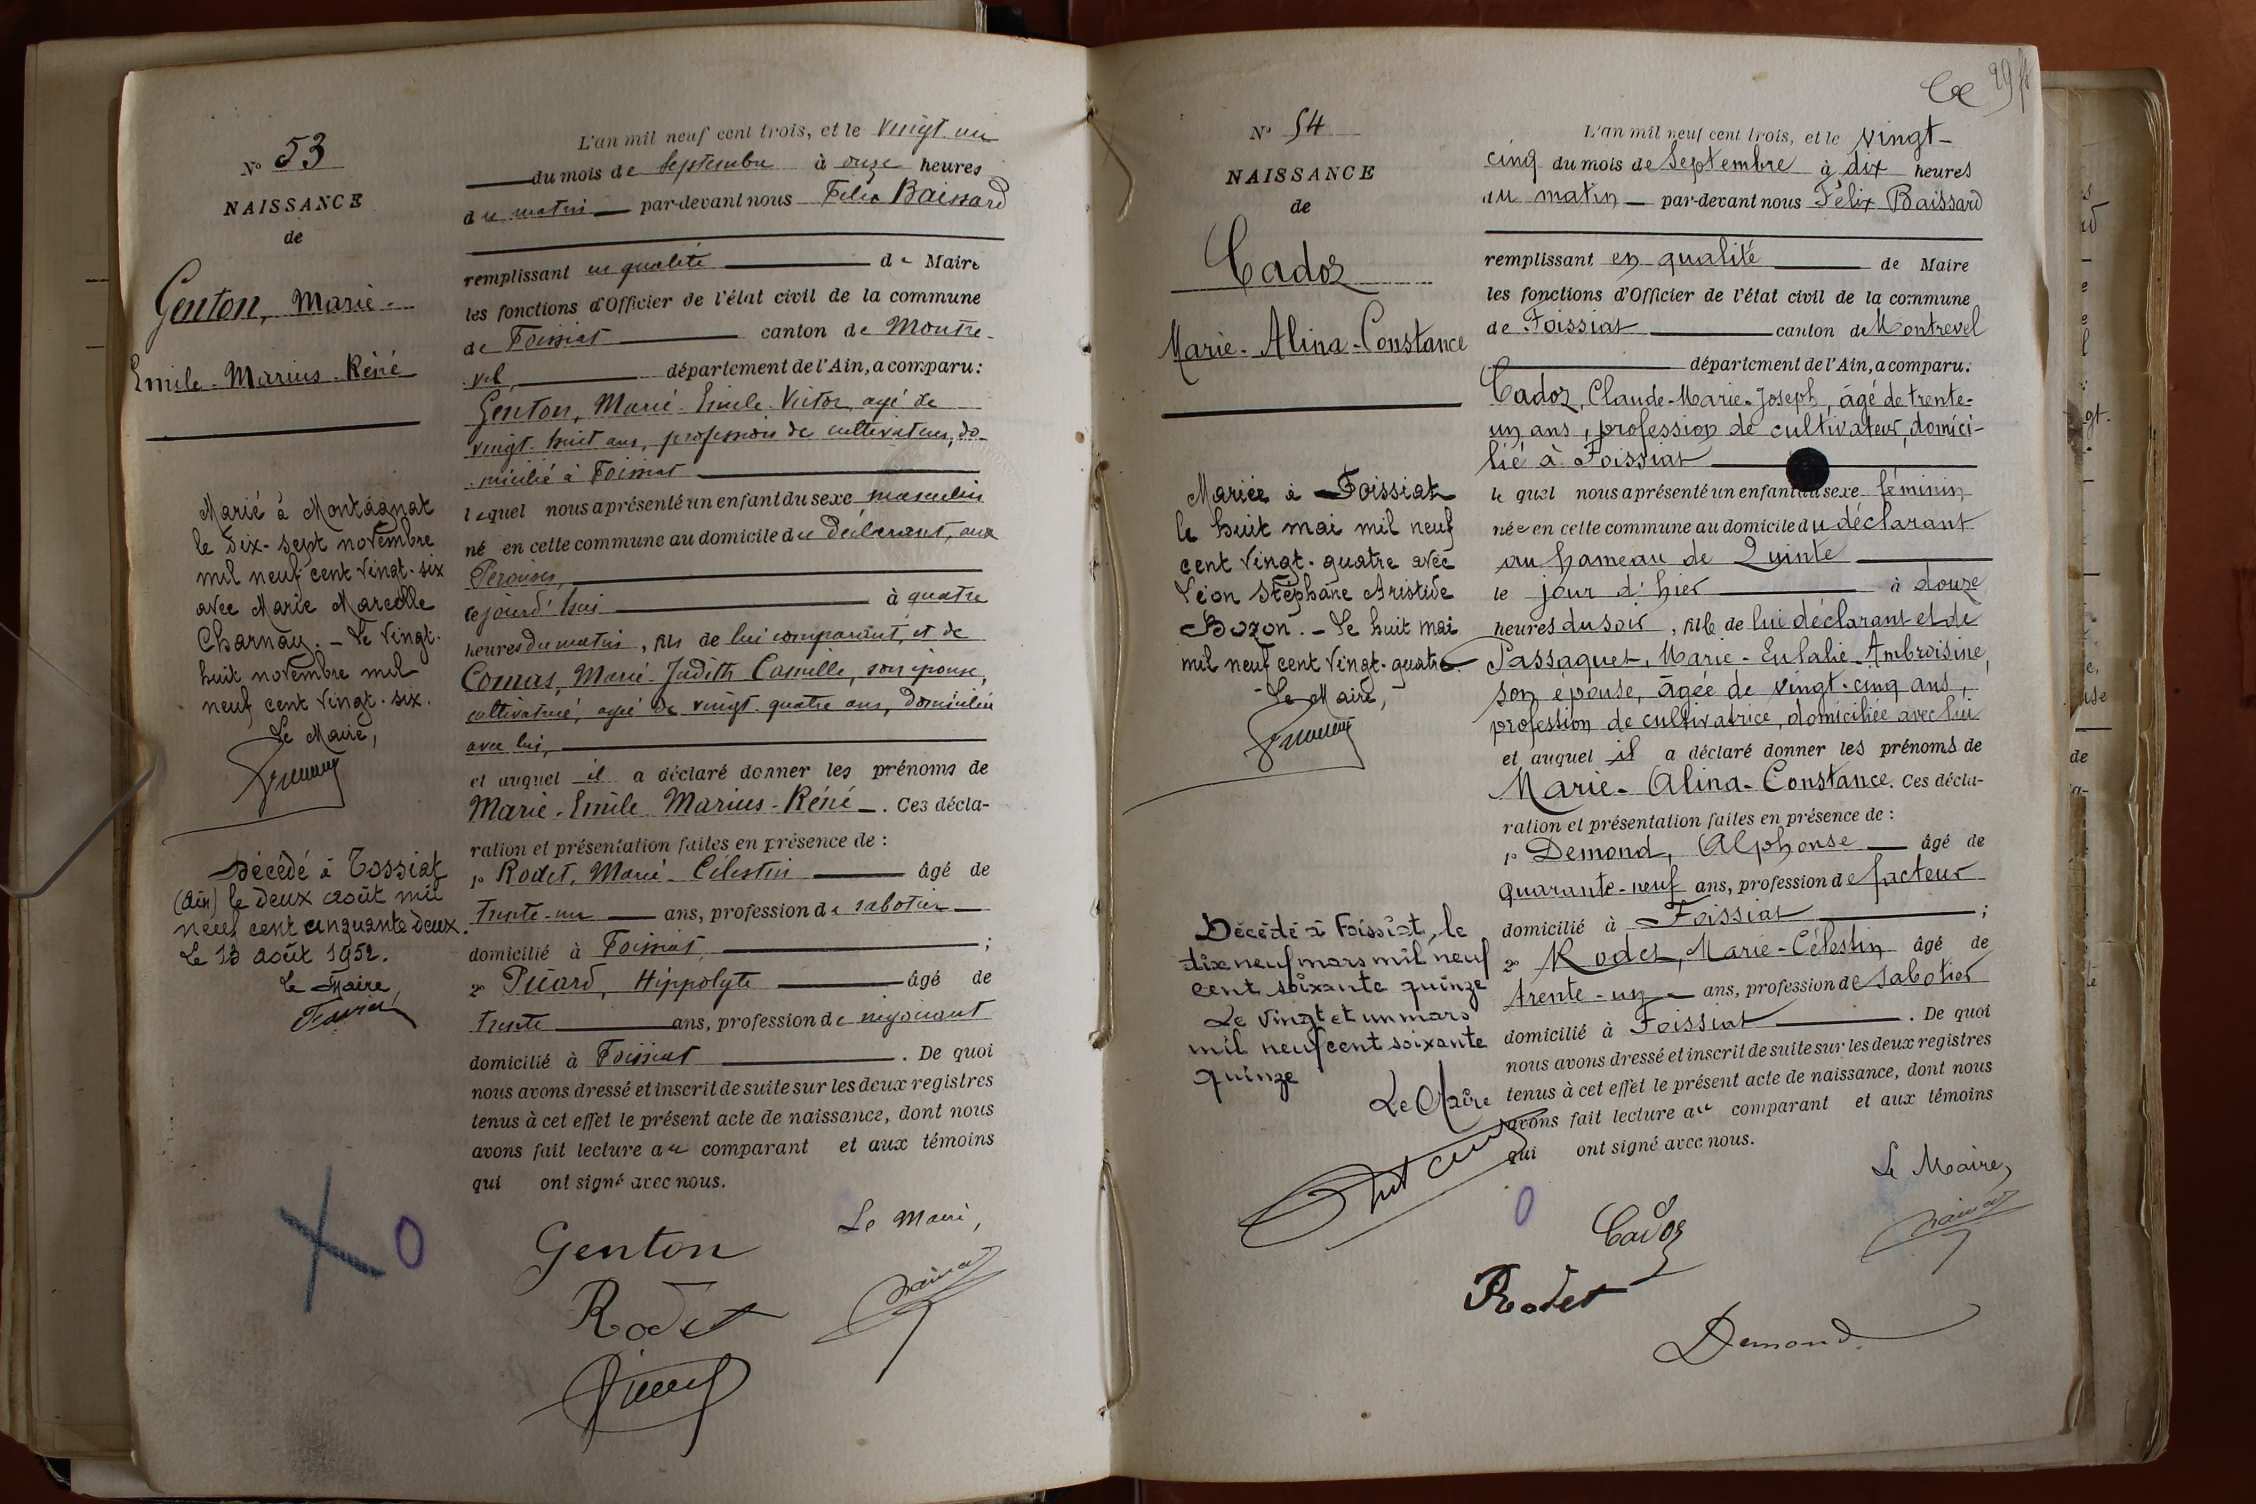 N° 53
NAISSANCE
de
Genton, Marie-
Emile-Marius-Réné
Marié à Montagnat
le dix-sept novembre
mil neuf cent vingt-six
avec Marie Marcelle
Charnay. - Le vingt-
huit novembre mil
neuf cent vingt-six.
Le Maire,
Décédé à Tossiat
(Ain) le deux août mil
neuf cent cinquante deux.
Le 13 août 1952.
Le Maire,
L'an mil neuf cent trois, et le vingt un
du mois de Septembre à onze heures
du matin par-devant nous Félix Baissard
remplissant en qualité de Maire
les fonctions d'Officier de l'état civil de la commune
de Foissiat canton de Montre-
vel, département de l'Ain, a comparu:
Genton, Marie-Emile-Victor, agé de
vingt-huit ans, profession de cultivateur, do-
micilié à Foissiat
lequel nous a présenté un enfant du sexe masculin
né en cette commune au domicile du déclarant, aux
cejourd'hui à quatre
heures du matin, fils de lui comparant, et de
Comas, Marie-Judith Camille, son épouse,
cultivatrice, agée de vingt-quatre ans, domiciliée
avec lui,
et auquel il a déclaré donner les prénoms de
Marie-Emile Marius-Réné. Ces décla-
ration et présentation faites en présence de :
1° Rodet, Marie-Célestin âgé de
trente-un ans, profession de sabotier
domicilié à Foissiat, ;
2° Picard, Hippolyte âgé de
trente ans, profession de négociant
domicilié à Foissiat. De quoi
nous avons dressé et inscrit de suite sur les deux registres
tenus à cet effet le présent acte de naissance, dont nous
avons fait lecture au comparant et aux témoins
qui ont signé avec nous.
Le Maire,
Genton
Rodet
X 0
29
N° 54
NAISSANCE
de
Cadoz
Marie-Alina-Constance
Mariée à Foissiat
le huit mai mil neuf
cent vingt-quatre avec
Léon Stéphane Aristide
Bozon. - Le huit mai
mil neuf cent vingt-quatre.
Le Maire,
Décédé à Foissiat, le
dix neuf mars mil neuf
cent soixante quinze
Le vingt et un mars
mil neuf cent soixante
quinze
Le Maire
L'an mil neuf cent trois, et le vingt-
cinq du mois de Septembre à dix heures
du matin par-devant nous Félix Baissard
remplissant en qualité de Maire
les fonctions d'Officier de l'état civil de la commune
de Foissiat canton de Montrevel
département de l'Ain, a comparu:
Cadoz, Claude-Marie-Joseph, âgé de trente-
un ans, profession de cultivateur, domici-
lié à Foissiat
le quel nous a présenté un enfant du sexe féminin
née en cette commune au domicile du déclarant
au hameau de Quinte
le jour d'hier à douze
heures du soir, fille de lui déclarant et de
Passaquet, Marie-Eulalie-Ambroisine,
son épouse, âgée de vingt-cinq ans,
profession de cultivatrice, domiciliée avec lui
et auquel il a déclaré donner les prénoms de
Marie-Alina-Constance. Ces décla-
ration et présentation faites en présence de :
1° Demond, Alphonse âgé de
quarante-neuf ans, profession de facteur
domicilié à Foissiat ;
2° Rodet, Marie-Célestin âgé de
trente-un ans, profession de sabotier
domicilié à Foissiat. De quoi
nous avons dressé et inscrit de suite sur les deux registres
tenus à cet effet le présent acte de naissance, dont nous
avons fait lecture au comparant et aux témoins
qui ont signé avec nous.
Le Maire,
0
Cadoz
Rodet
Demond